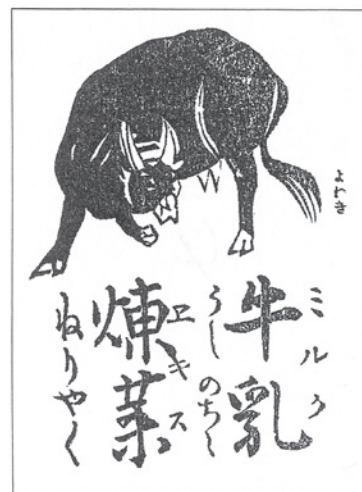 ミルク
牛乳
うしのちゝ
ヱキス
煉薬
ねりやく